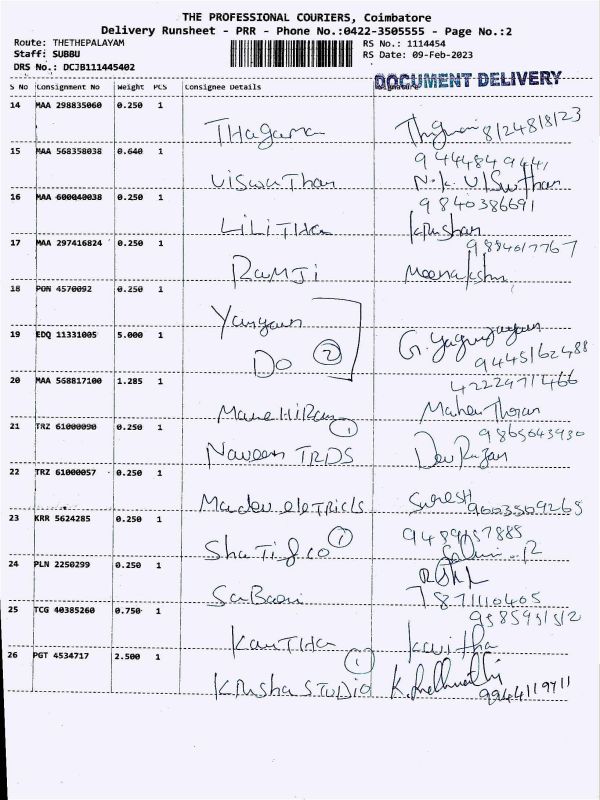 THE PROFESSIONAL COURIERS, Coimbatore
Delivery Runsheet - PRR - Phone No.:0422-3505555 - Page No.:2
Route: THETHEPALAYAM RS No.: 1114454
Staff: SUBBU RS Date: 09-Feb-2023
DRS No.: DCJB111445402
DOCUMENT DELIVERY
S No Consignment No Weight PCS Consignee Details Signature
14 MAA 298835060 0.250 1
THagama
15 MAA 568358038 0.640 1
ViswaThan N.K. ViSwThan
16 MAA 600040038 0.250 1 9840386691
LiLiTHa
17 MAA 297416824 0.250 1
RamJi Meenakshi
18 PON 4570092 0.250 1
19 EDQ 11331005 5.000 1
Do 2
9445162488
20 MAA 568817100 1.285 1
ManeHiRam
21 TRZ 61000090 0.250 1 1 9865643930
Naveen TRDS
22 TRZ 61000057 0.250 1
Madev eletricls Suresh 9603569265
23 KRR 5624285 0.250 1
ShaTi & co 1
24 PLN 2250299 0.250 1
SaBari
25 TCG 40385260 0.750 1
KanTHa kavitha
26 PGT 4534717 2.500 1 1
KRisha STUDIO 9944119711